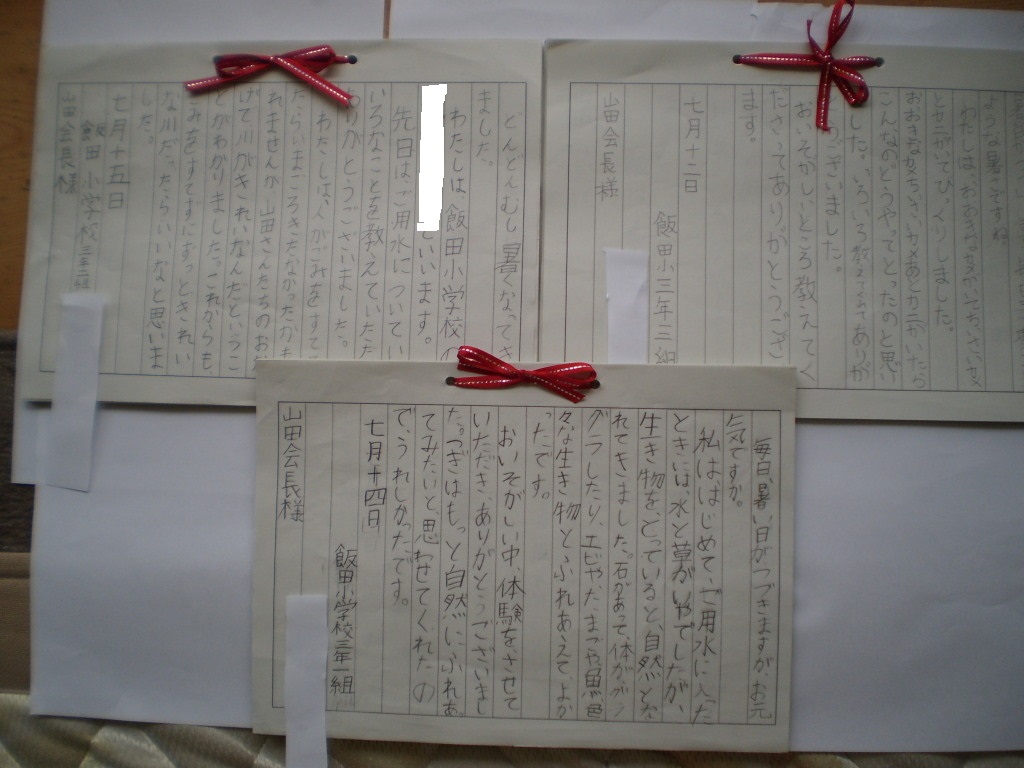 どんどんむし暑くなってき
ました。
わたしは、飯田小学校の
といいます。
先日は、ご用水についてい
いろなことを教えていただ
ありがとうございました。
わたしは、人がごみをすて
たらいまごろきたなかったかも
れませんが 山田さんたちのお
げて川がきれいなんだというこ
とがわかりました。これからも
ごみをすてずにずっときれい
な川だったらいいなと思いま
した。
七月十五日
飯田小学校三年三組
山田会長様
ような暑さですね。
わたしは、
びっくりしました。
こんなのどうやってとったのと思い
ました。いろいろ教えて ありが
とうございました。
おいそがしいところ教えてく
ださってありがとうござい
ます。
七月十二日
飯田小三年三組
山田会長様
毎日、暑い日がつづきますが お元
気ですか。
私は、はじめて、ぜ用水に入た
ときは、水と草がいやでしたが、
生き物をとっていると、自然とな
れてきました。石があって、体がグ
グラしたり、エビやたまごや黒色
々な生き物と、ふれあえて、よか
ったです。
おいそがしい中、体験をさせて
いただき、ありがとうございまし
た。つぎは、もっと自然にふれあ
てみたいと、思わせてくれたの
で、うれしかったです。
七月十四日
飯田小学校三年一組
山田会長様